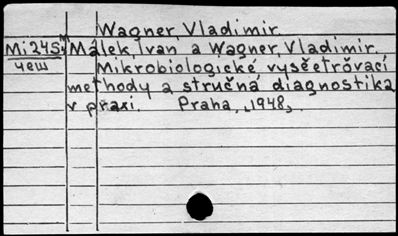 Wagner, Vladimir.
Mi 245 Málek, Ivan a Wagner, Vladimir.
чеш Mikrobiologické vyšetřovací
methody a stručná diagnostika
v praxi. Praha, „1948„